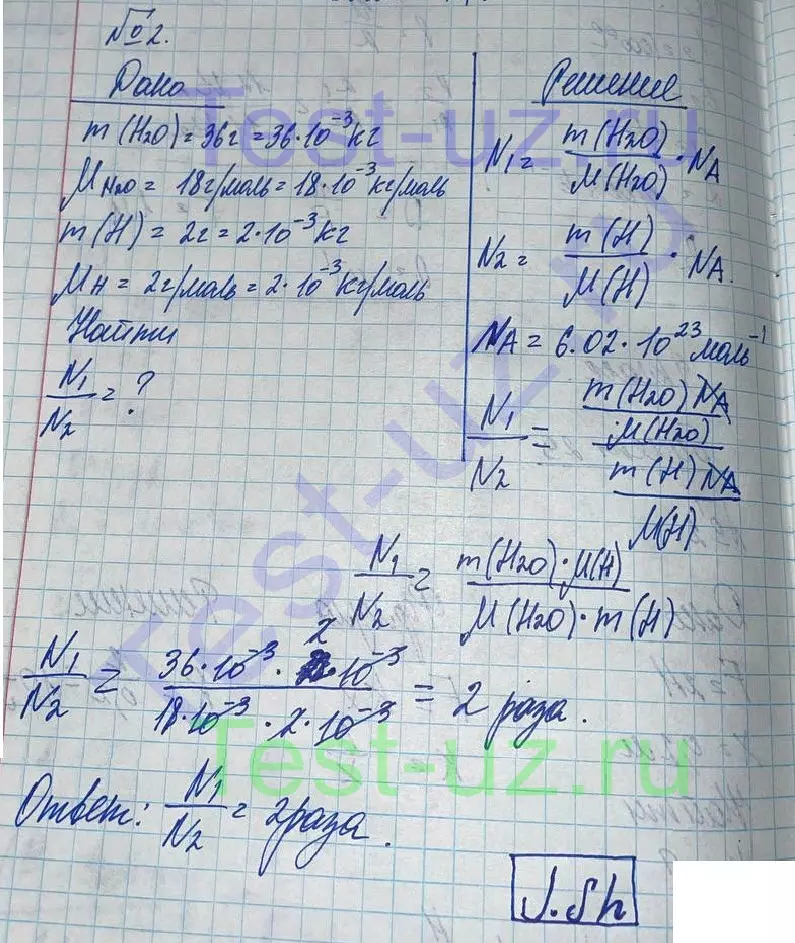 №2.
Дано
m(H2O) = 36г = 36·10⁻³ кг
MH2O = 18г/моль = 18·10⁻³ кг/моль
m(H) = 2г = 2·10⁻³ кг
MH = 2г/моль = 2·10⁻³ кг/моль
Найти
N1/N2 = ?
Решение
N1 = m(H2O)/M(H2O) · NA
N2 = m(H)/M(H) · NA.
NA = 6.02·10²³ моль⁻¹
N1/N2 = (m(H2O) NA/M(H2O))/(m(H) NA/M(H))
N1/N2 = m(H2O)·M(H)/M(H2O)·m(H)
N1/N2 = 36·10⁻³ · 2·10⁻³/18·10⁻³ · 2·10⁻³ = 2 раза.
Ответ: N1/N2 = 2раза.
J.Sh
Test-uz.ru
Test-uz.ru
Test-uz.ru